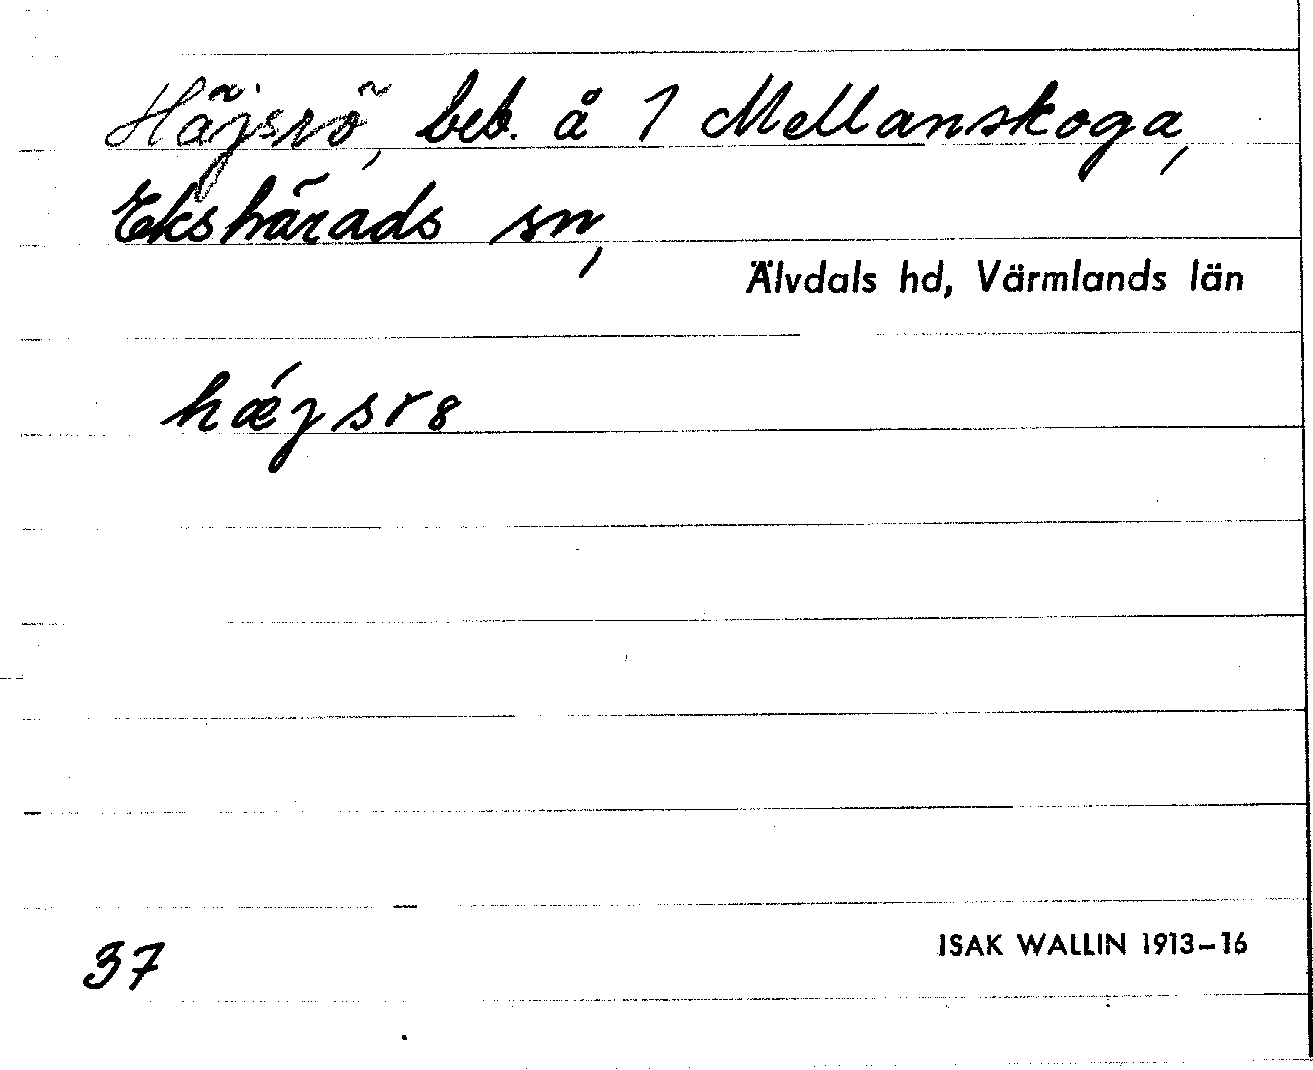 Häjsrö, beb. å 1 Mellanskoga,
Ekshärads sn,
Älvdals hd, Värmlands län
hǽjsr8
37
ISAK WALLIN 1913–16